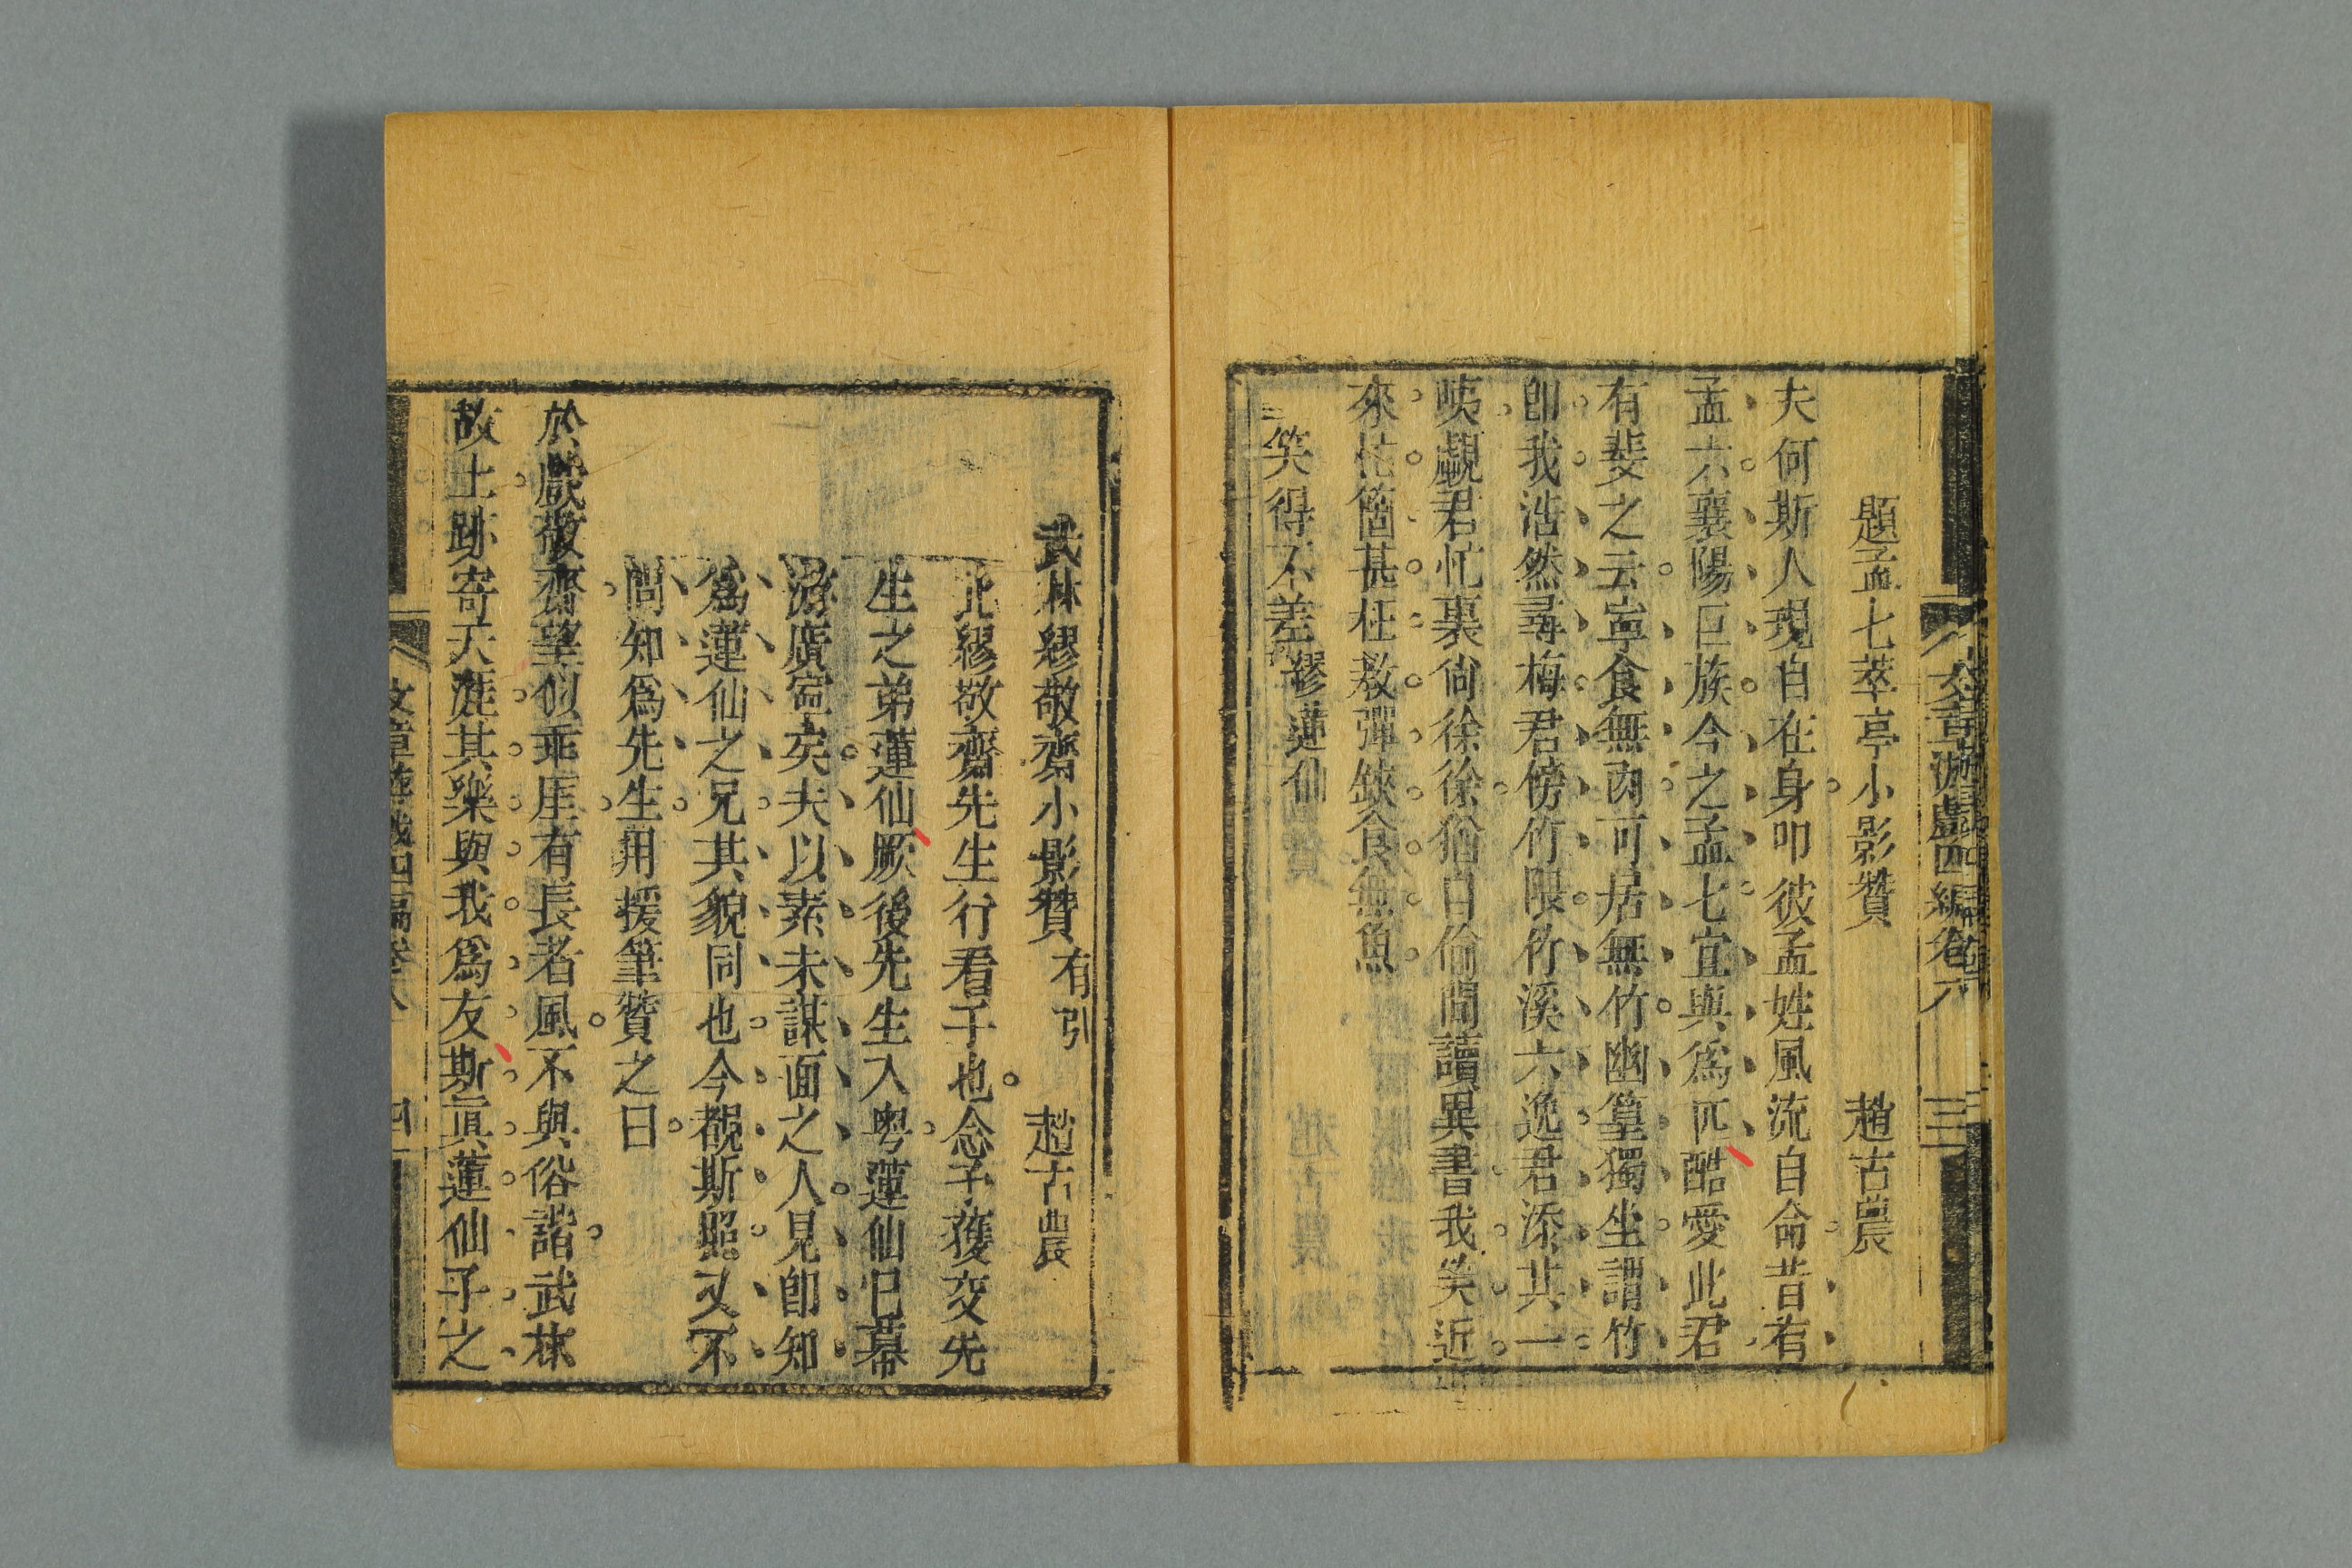 文章游戲四編卷六 三
題孟七萃亭小影贊 趙古農
夫何斯人現自在身叩彼孟姓風流自命昔有
孟六襄陽巨族今之孟七宜與爲匹酷愛此君
有斐之云寧食無肉可居無竹幽篁獨坐謂竹
卽我浩然尋梅君傍竹隈竹溪六逸君添其一
咦覷君忙裏尙徐徐猶日偷閒讀異書我笑近
來忙箇甚枉教彈鋏食無魚
笑得不差繆蓮仙
武林繆敬齋小影贊有引 趙古農
此繆敬齋先生行看子也念予獲交先
生之弟蓮仙厥後先生入粤蓮仙已幕
游廣寧矣夫以素未謀面之人見卽知
爲蓮仙之兄其貌同也今覩斯照又不
問知爲先生用援筆贊之曰
於戲敬齋望似乖厓有長者風不與俗諧武林
故土跡寄天涯其樂與我爲友斯眞蓮仙子之
文章游戲四編卷六 四